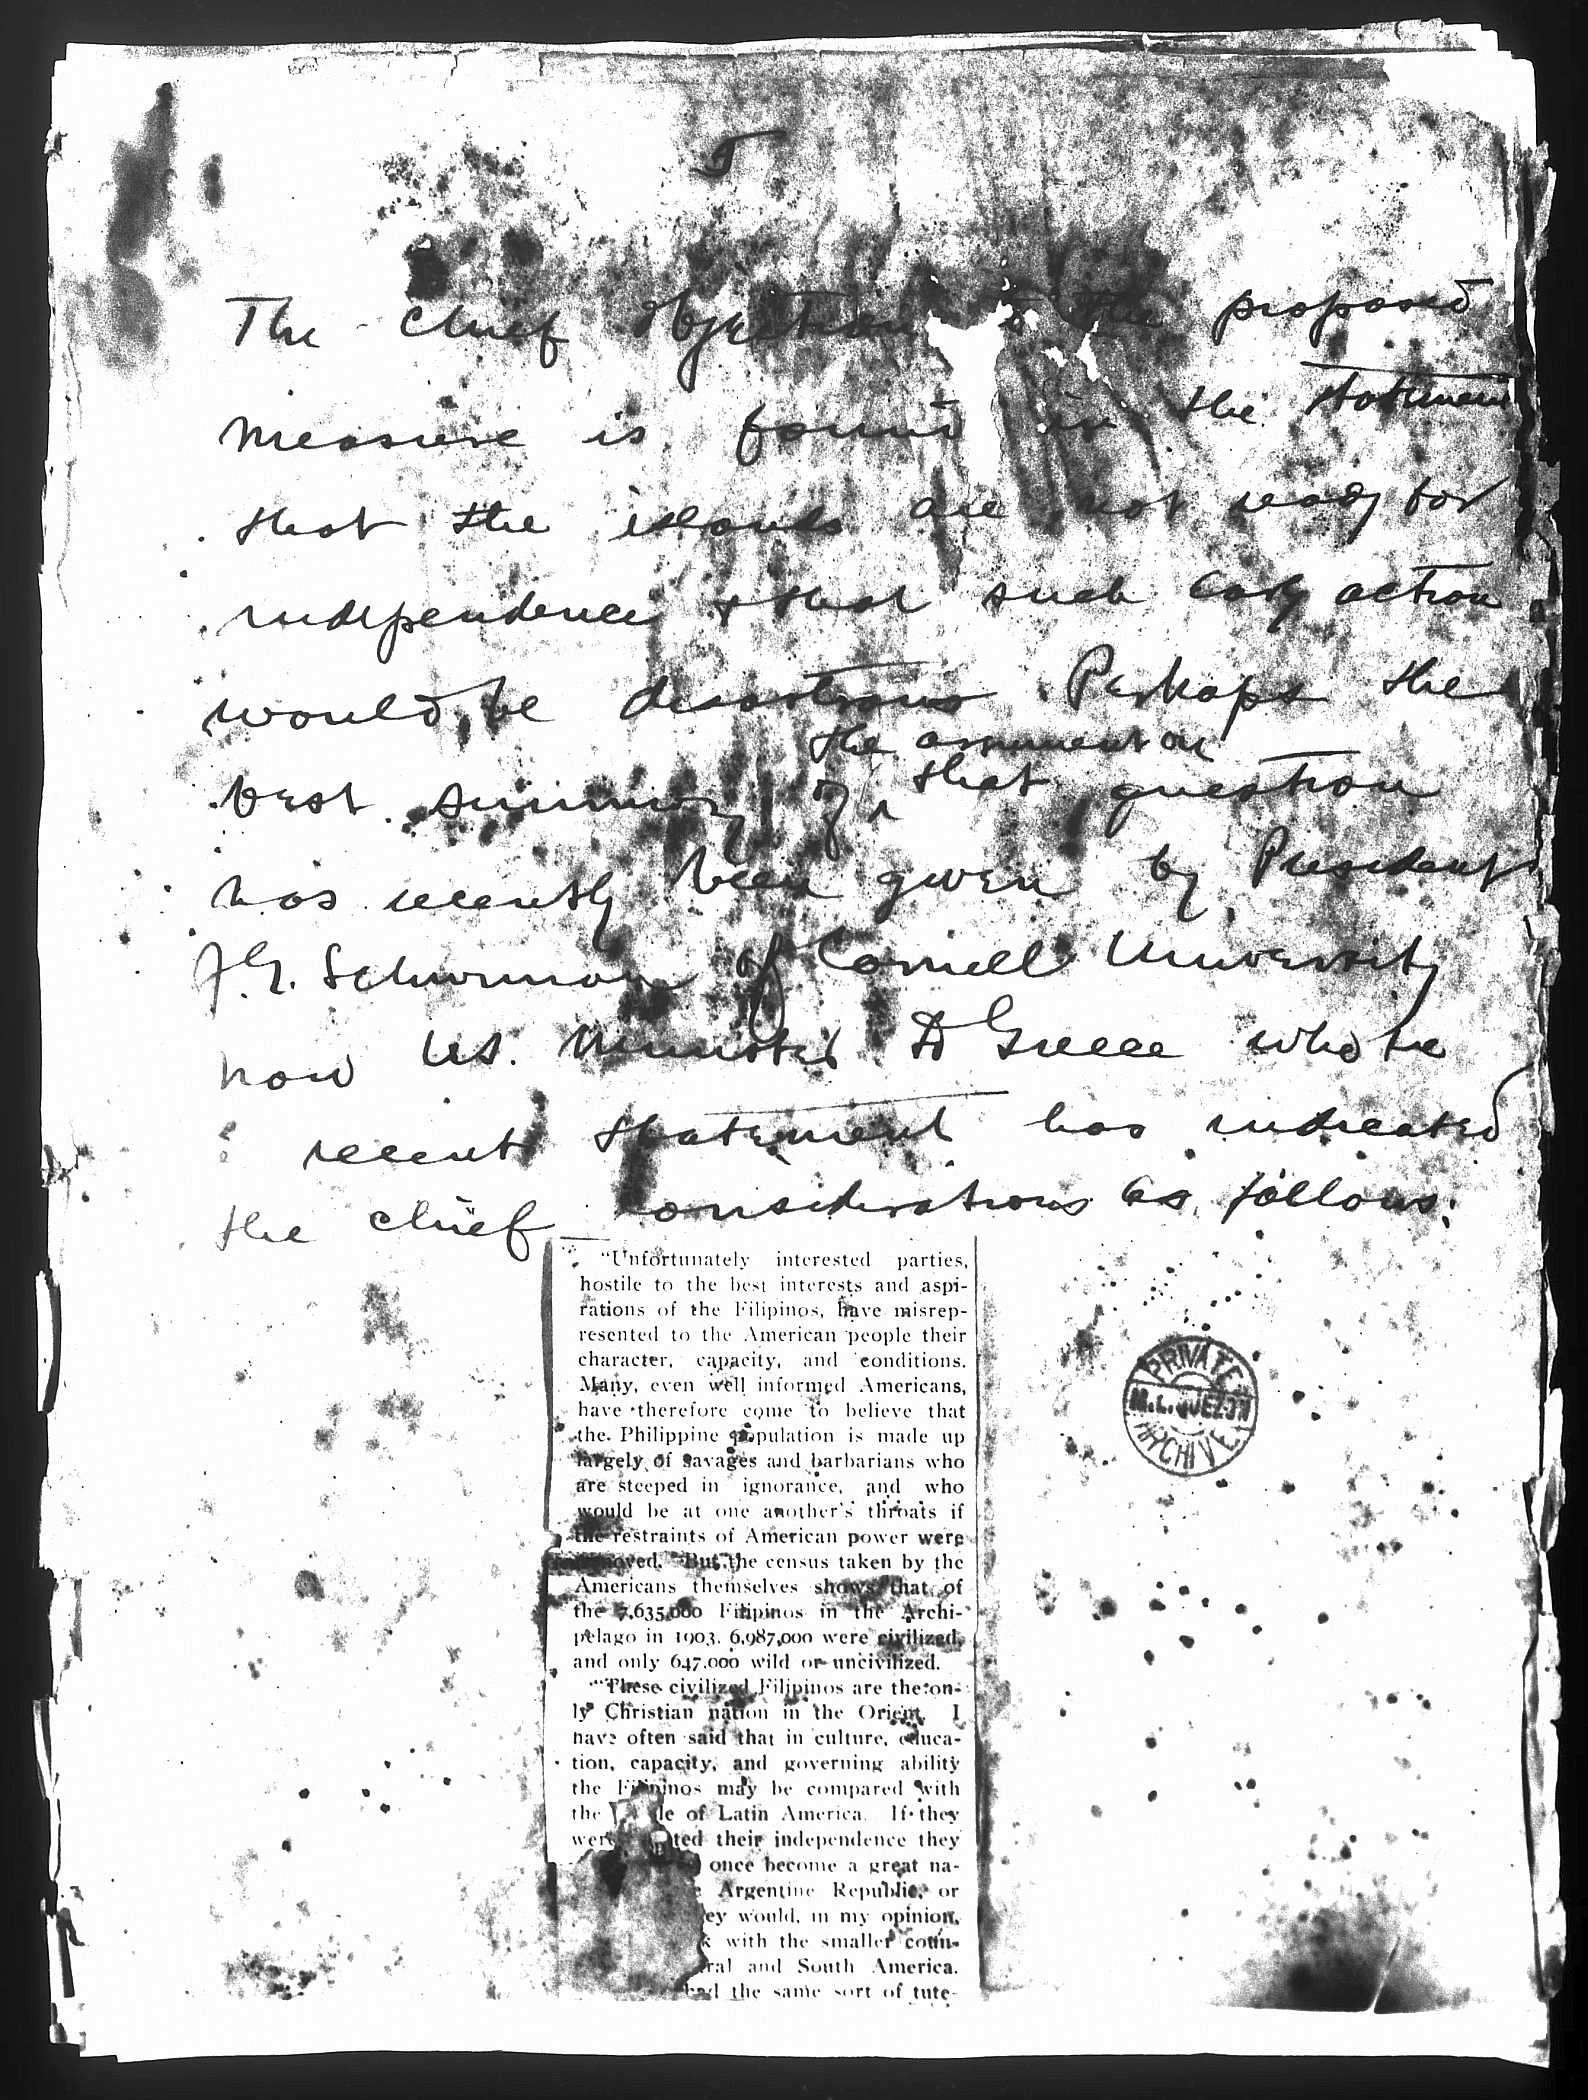 5
The chief objection to the proposed
measure is found in the statement
that the islands are not ready for
independence & that such early action
would be disastrous Perhaps the
the argument on
best summary of ^ that question
has recently been given by President
J.G. Schurman of Cornell University
now U.S. Minister to Greece who in
recent statement has indicated
the chief considerations as follows:
"Unfortunately interested parties,
hostile to the best interests and aspi-
rations of the Filipinos, have misrep-
resented to the American people their
character, capacity, and conditions.
Many, even well informed Americans,
have therefore come to believe that
the Philippine population is made up
largely of savages and barbarians who
are steeped in ignorance, and who
would be at one another's throats if
the restraints of American power were
removed. But the census taken by the
Americans themselves shows that of
the 7,635,000 Filipinos in the Archi-
pelago in 1903, 6,987,000 were civilized,
and only 647,000 wild or uncivilized.
"These civilized Filipinos are the on-
ly Christian nation in the Orient. I
have often said that in culture, educa-
tion, capacity, and governing ability
the Filipinos may be compared with
the of Latin America. If they
were their independence they
once become a great na-
Argentine Republic, or
ey would, in my opinion,
k with the smaller coun-
ral and South America.
had the same sort of tute-
PRIVATE
M.L. QUEZON
ARCHIVE